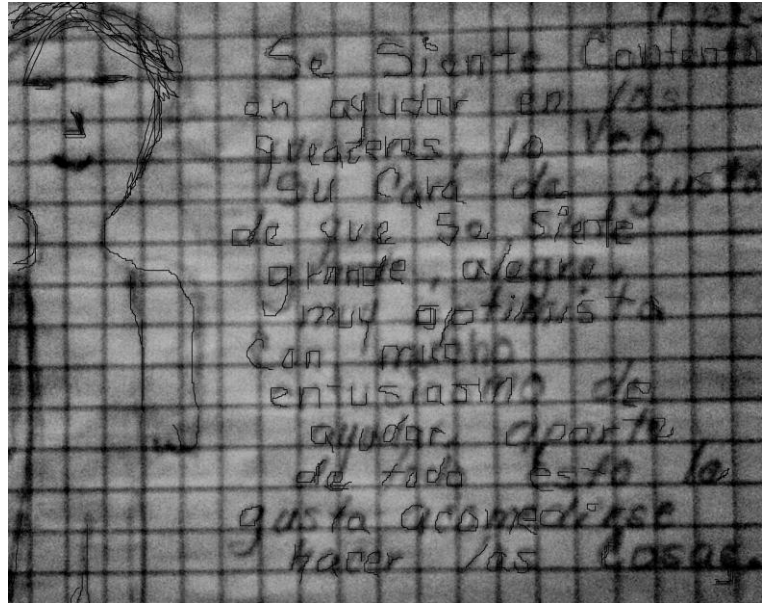 Se Siente Contento
en ayudar en los
queaceres, le Veo
su Cara de gusto
de que Se Siente
grande, alegre,
muy optimista
Con mucho
entusiasmo de
ayudar, aparte
de todo esto le
gusta acomedirse
hacer las Cosas.